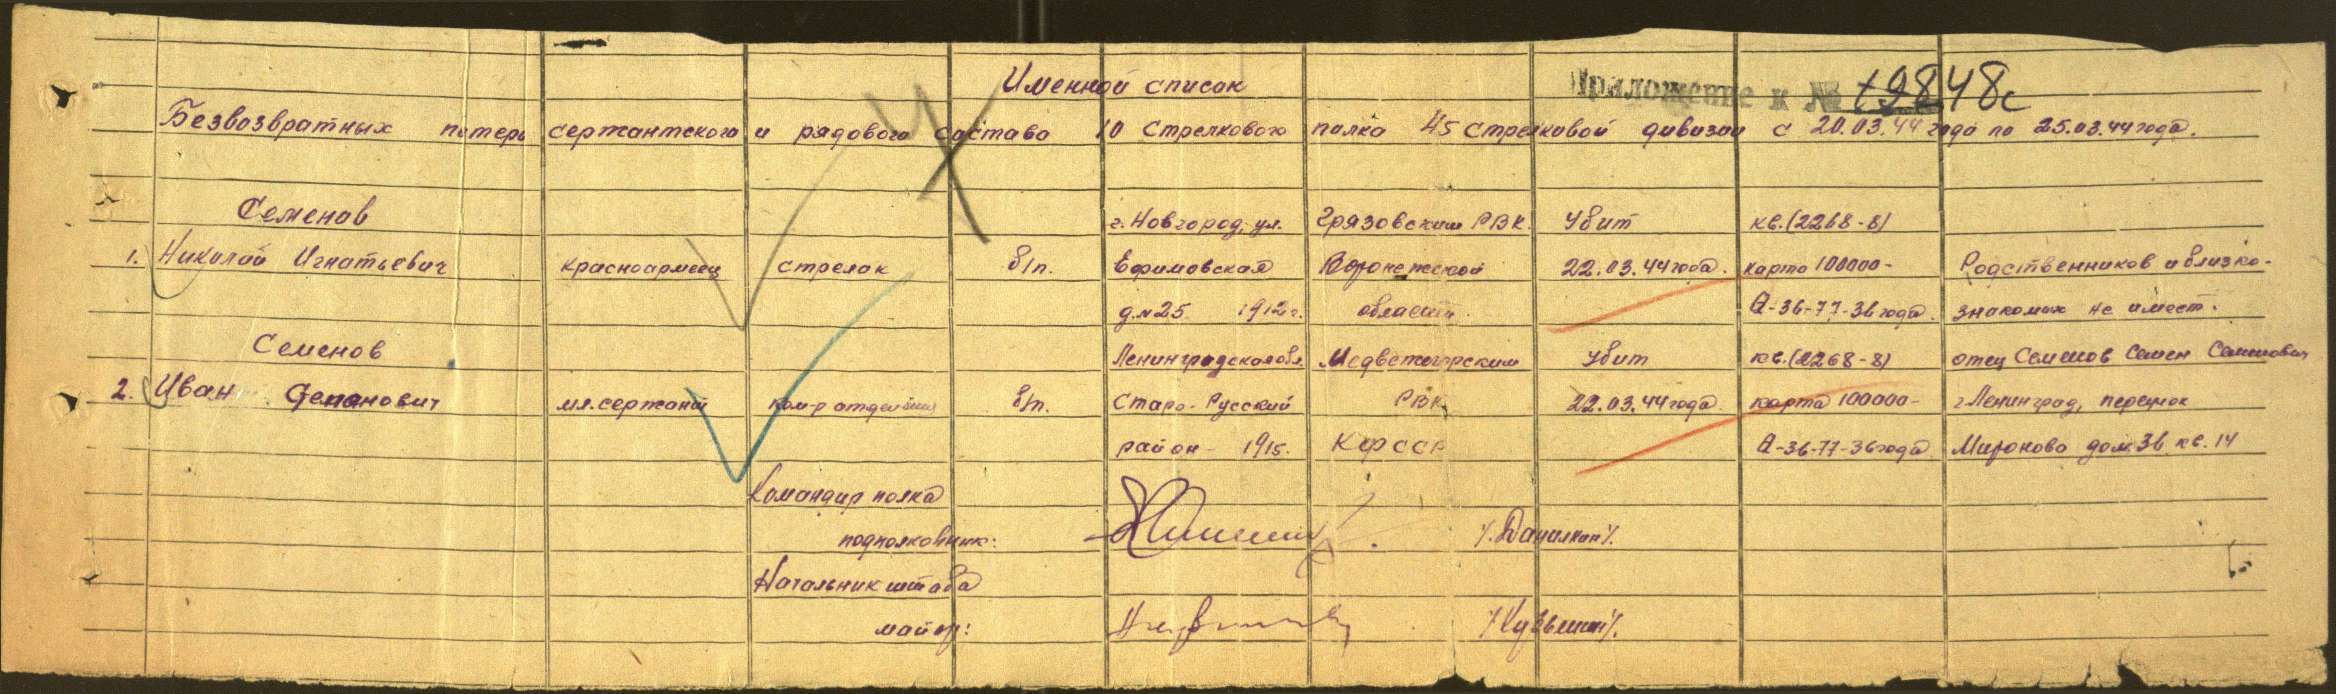 Именной список
Приложение к № 19848с
Безвозвратных потерь сержантского и рядового состава 10 Стрелкового полка 45 Стрелковой дивизии с 20.03.44 года по 25.03.44 года.
Семенов г. Новгород, ул. Грязовским РВК. Убит кв.(2268-8)
1. Николай Игнатьевич красноармеец стрелок б/п. Ефимовская Воронежской 22.03.44 года. карта 100000- Родственников и близко-
д.№25 1912 г. области 0-36-77-36 года. знакомых не имеет.
Семенов Ленинградская обл. Медвежегорским Убит кв.(2268-8) отец Семенов Семен
2. Иван мл. сержант ком-р отделения б/п. Старо-Русский РВК 22.03.44 года. карта 100000- г. Ленинград, переулок
район - 1915. КФССР 0-36-77-36 года Миронова дом 36 кв. 14
Командир полка
подполковник: /. Данилкин /.
Начальник штаба
майор: / Кузьмин /.